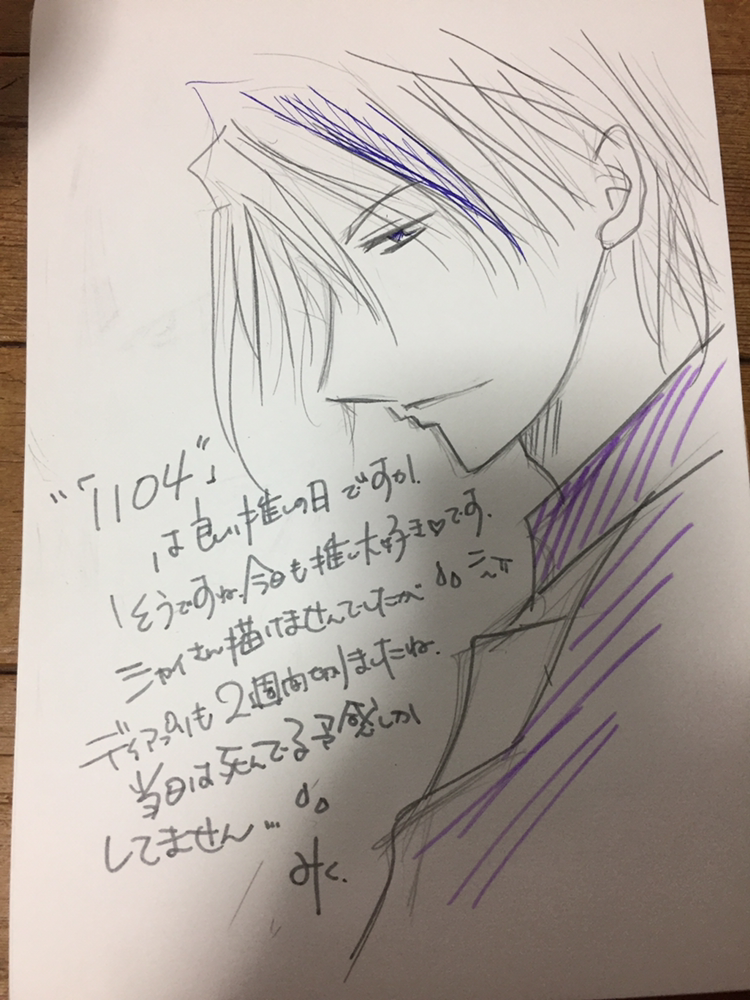 "「1104」"
は良い推しの日ですか!
そうですね、今日も推し大好き♡です。
シャイさん描けませんでしたが
ディアプルも2週間切りましたね。
当日は死んでる予感しか
してません…
みく.